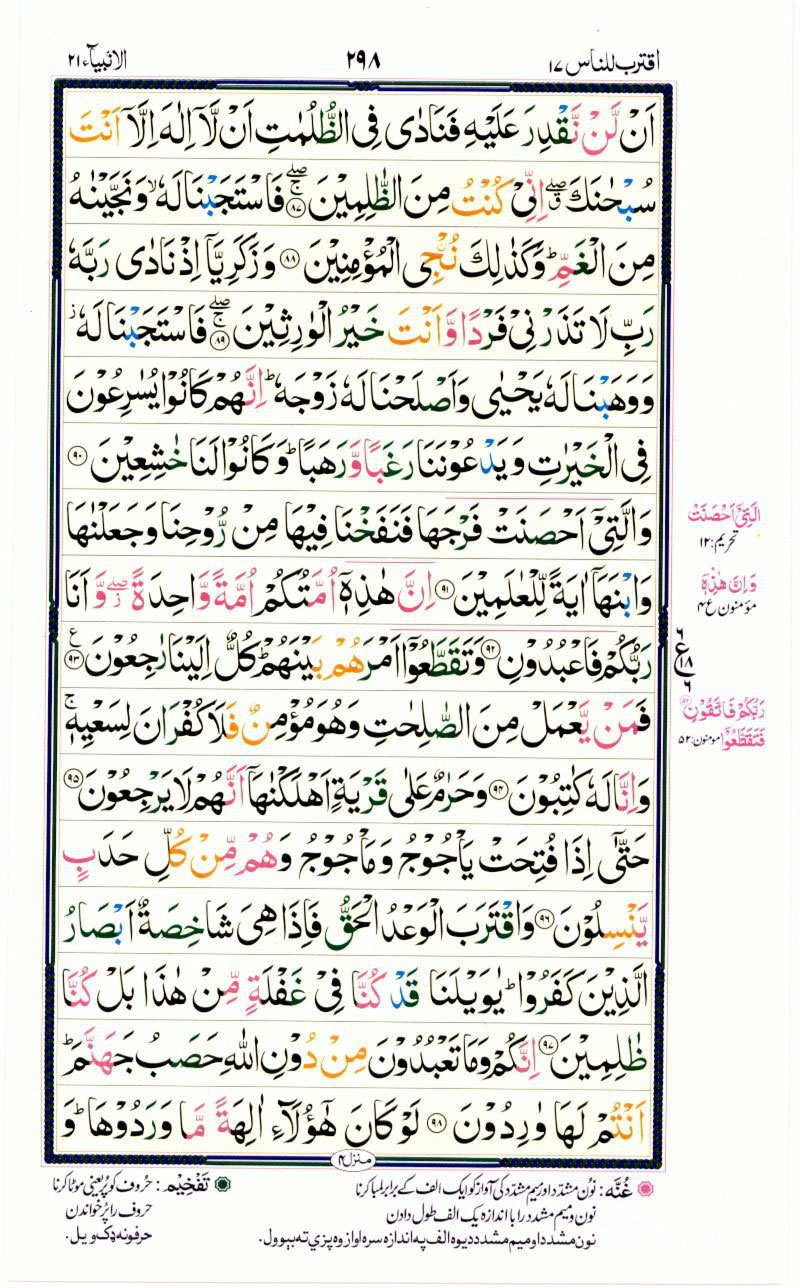 اقترب للناس ١٧
٢٩٨
الانبیآء ٢١
اَنْ لَّنْ نَّقْدِرَ عَلَيْهِ فَنَادٰى فِى الظُّلُمٰتِ اَنْ لَّاۤ اِلٰهَ اِلَّاۤ اَنْتَ
سُبْحٰنَكَ ۖۗ اِنِّىْ كُنْتُ مِنَ الظّٰلِمِيْنَ ۚۖ‏﴿٨٧﴾ فَاسْتَجَبْنَا لَهٗ ۙ وَنَجَّيْنٰهُ
مِنَ الْغَمِّ ؕ وَكَذٰلِكَ نُـنْجِى الْمُؤْمِنِيْنَ ‏﴿٨٨﴾ وَزَكَرِيَّاۤ اِذْ نَادٰى رَبَّهٗ
رَبِّ لَا تَذَرْنِىْ فَرْدًا وَّاَنْتَ خَيْرُ الْوٰرِثِيْنَ ۚۖ‏﴿٨٩﴾ فَاسْتَجَبْنَا لَهٗ ز
وَوَهَبْنَا لَهٗ يَحْيٰى وَاَصْلَحْنَا لَهٗ زَوْجَهٗ ؕ اِنَّهُمْ كَانُوْا يُسٰرِعُوْنَ
فِى الْخَيْرٰتِ وَيَدْعُوْنَنَا رَغَبًا وَّرَهَبًا ؕ وَكَانُوْا لَنَا خٰشِعِيْنَ ‏﴿٩٠﴾
وَالَّتِىْۤ اَحْصَنَتْ فَرْجَهَا فَنَفَخْنَا فِيْهَا مِنْ رُّوْحِنَا وَجَعَلْنٰهَا
وَابْنَهَاۤ اٰيَةً لِّلْعٰلَمِيْنَ ‏﴿٩١﴾ اِنَّ هٰذِهٖۤ اُمَّتُكُمْ اُمَّةً وَّاحِدَةً ۖز وَّاَنَا
رَبُّكُمْ فَاعْبُدُوْنِ ‏﴿٩٢﴾ وَتَقَطَّعُوْۤا اَمْرَهُمْ بَيْنَهُمْ ؕ كُلٌّ اِلَيْنَا رٰجِعُوْنَ ‏﴿٩٣﴾ ع
فَمَنْ يَّعْمَلْ مِنَ الصّٰلِحٰتِ وَهُوَ مُؤْمِنٌ فَلَا كُفْرَانَ لِسَعْيِهٖ ۚ
وَاِنَّا لَهٗ كٰتِبُوْنَ ‏﴿٩٤﴾ وَحَرٰمٌ عَلٰى قَرْيَةٍ اَهْلَكْنٰهَاۤ اَنَّهُمْ لَا يَرْجِعُوْنَ ‏﴿٩٥﴾
حَتّٰٓى اِذَا فُتِحَتْ يَاْجُوْجُ وَمَاْجُوْجُ وَهُمْ مِّنْ كُلِّ حَدَبٍ
يَّنْسِلُوْنَ ‏﴿٩٦﴾ وَاقْتَرَبَ الْوَعْدُ الْحَقُّ فَاِذَا هِىَ شَاخِصَةٌ اَبْصَارُ
الَّذِيْنَ كَفَرُوْا ؕ يٰوَيْلَنَا قَدْ كُنَّا فِىْ غَفْلَةٍ مِّنْ هٰذَا بَلْ كُنَّا
ظٰلِمِيْنَ ‏﴿٩٧﴾ اِنَّكُمْ وَمَا تَعْبُدُوْنَ مِنْ دُوْنِ اللّٰهِ حَصَبُ جَهَنَّمَ ؕ
اَنْتُمْ لَهَا وٰرِدُوْنَ ‏﴿٩٨﴾ لَوْ كَانَ هٰٓؤُلَاۤءِ اٰلِهَةً مَّا وَرَدُوْهَا ؕ وَ
الَّتِىْۤ اَحْصَنَتْ
تحریم: ١٢
وَاِنَّ هٰذِهٖۤ
مؤمنون ع ٤
٦
ع ١٨
٦
رَبُّكُمْ فَاتَّقُوْنِ
فَتَقَطَّعُوْۤا مومنون: ٥٢
منزل ٤
غُنَّه: نون مشدد اور میم مشدد کی آواز کو ایک الف کے برابر لمبا کرنا
نون و میم مشدد را با اندازه یک الف طول دادن
نون مشدد او میم مشدد دیوه الف په اندازه سره اواز وه پزې ته بېوول.
تَفْخِيْم: حروف کو پُر یعنی موٹا کرنا
حروف را پُر خواندن
حرفونه ډک ویل.